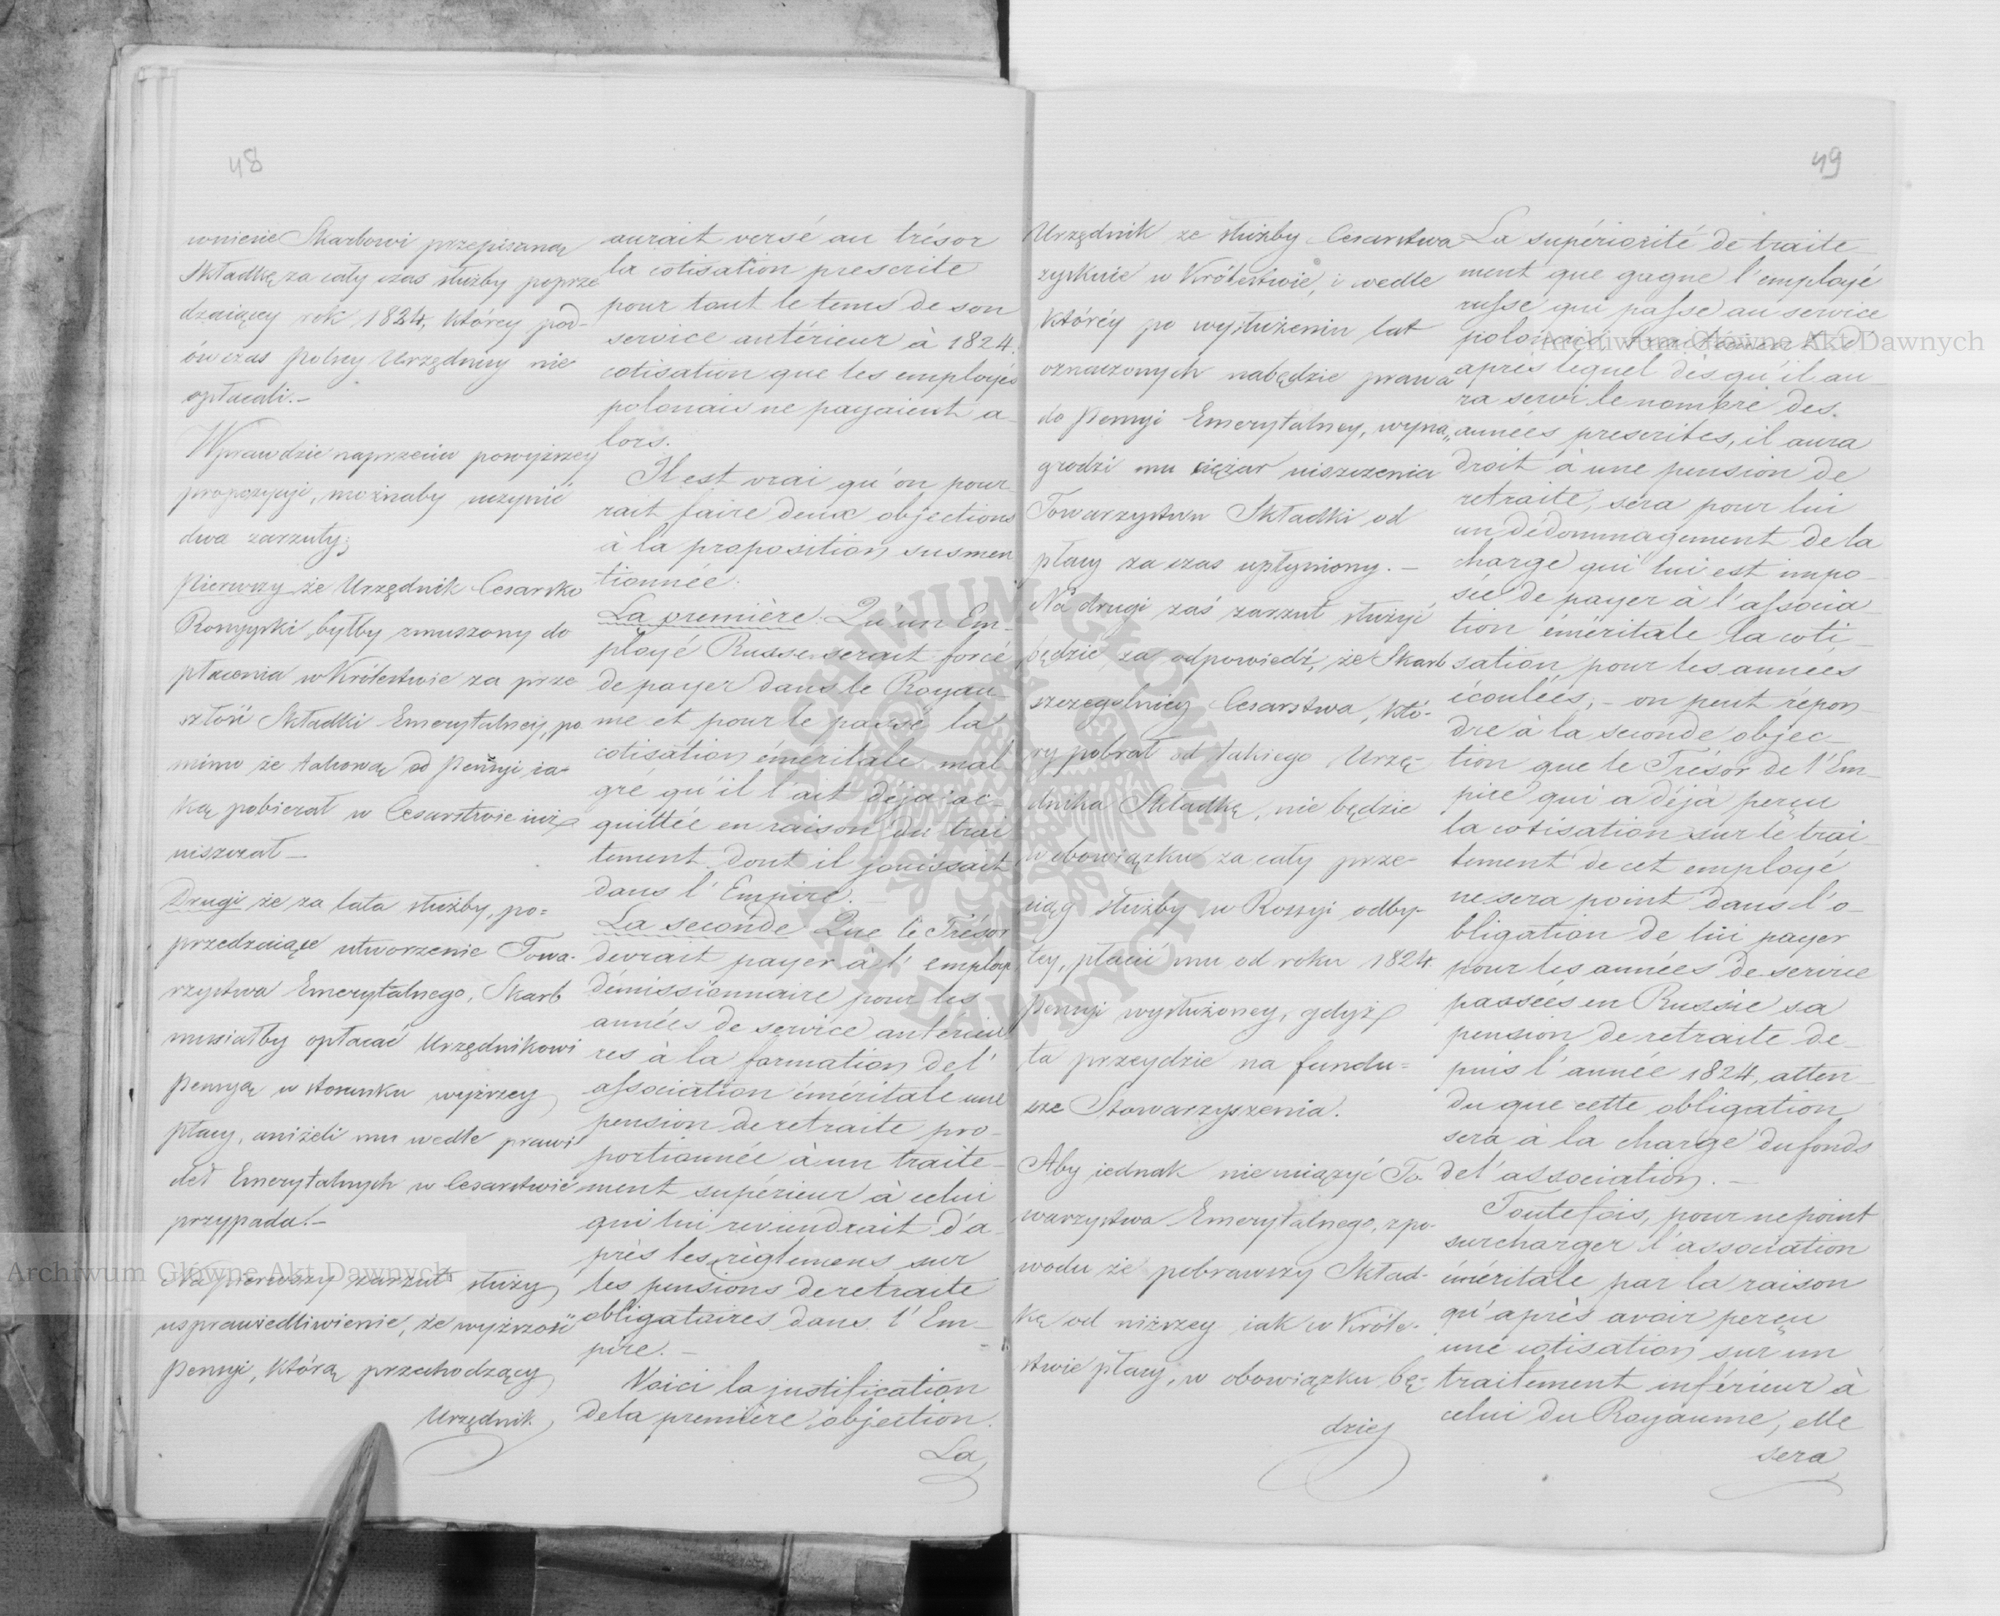 48
wnienie Skarbowi przepisaną
Składkę za cały czas służby poprze
dzaiący rok 1824, którey pod-
ówczas Polscy Urzędnicy nie
opłacali.-
Wprawdzie naprzeciw powyższey
propozycyi, możnaby uczynić
dwa zarzuty;
Pierwszy że Urzędnik Cesarsko
Rossyyski byłby zmuszony do
płacenia w Królestwie za prze
szłość Składki Emerytalney, po
mimo że takową od Pensyi ia-
ką pobierał w Cesarstwie iuż
uiszczał-
Drugi że za lata służby, po=
przedzaiące utworzenie Towa-
rzystwa Emerytalnego, Skarb
musiałby opłacać Urzędnikowi
Pensyą w stosunku wyższey
płacy, aniżeli mu wedle prawi
deł Emerytalnych w Cesarstwie
przypada.-
Na pierwszy zarzut służy
usprawiedliwienie, że wyższość
Pensyi, którą przechodzący
Urzędnik
aurait versé au trésor
la cotisation prescrite
pour tout le tems de son
service antérieur à 1824.
cotisation que les employés
polonais ne payaient a-
lors.
Il est vrai qu'on pour-
rait faire deux objections
à la proposition susmen
tionnée.
La première. Qu'un Em-
ployé Russe serait forcé
de payer dans le Royau-
me et pour le passé la
cotisation éméritale mal
gré qu'il l'ait déja ac-
quittée en raison du trai
tement dont il jouissait
dans l'Empire.
La seconde Que le Trésor
devrait payer à l'employé
démissionnaire pour les
années de service antérieu
res à la formation de l'
association éméritale une
pension de retraite pro-
portionnée à un traite-
ment supérieur à celui
qui lui reviendrait d'a-
près les règlemens sur
les pensions de retraite
obligatoires dans l'Em-
pire.-
Voici la justification
de la première objection.
La
49
Urzędnik ze służby Cesarstwa
zyskuie w Królestwie, i wedle
którey po wysłużeniu lat
oznaczonych nabędzie prawa
do Pensyi Emerytalney, wyna„
grodzi mu ciężar uiszczenia
Towarzystwu Składki od
płacy za czas upłyniony.-
Na drugi zaś zarzut służyć
będzie za odpowiedź, że Skarb
szczególniey Cesarstwa, któ-
ry pobrał od takiego Urzę-
dnika Składkę, nie będzie
w obowiązku za cały prze-
ciąg służby w Rossyi odby-
tey, płacić mu od roku 1824
Pensyi wysłużoney, gdyż
ta przeydzie na fundu=
sze Stowarzyszenia.
Aby iednak nie uciążyć To-
warzystwa Emerytalnego, z po-
wodu że pobrawszy Skład-
kę od niższey iak w Króle-
stwie płacy, w obowiązku bę-
dzie
La supériorité de traite
ment que gagne l'employé
russe qui passe au service
polonais
après lequel dès qu'il au
ra servi le nombre des
années prescrites, il aura
droit à une pension de
retraite, sera pour lui
un dédommagement de la
charge qui lui est impo-
sée de payer à l'associa
tion éméritale la coti-
sation pour les années
écoulées; - on peut répon
dre à la seconde objec-
tion que le Trésor de l'Em-
pire qui a déjà perçu
la cotisation sur le trai-
tement de cet employé
ne sera point dans l'o-
bligation de lui payer
pour les années de service
passées en Russie sa
pension de retraite de-
puis l'année 1824, atten-
du que cette obligation
sera à la charge du fonds
de l'association.-
Toutefois, pour ne point
surcharger l'association
éméritale par la raison
qu'après avoir perçu
une cotisation sur un
traitement inférieur à
celui du Royaume, elle
sera
Archiwum Główne Akt Dawnych
Archiwum Główne Akt Dawnych
ARCHIWUM GŁÓWNE AKT DAWNYCH